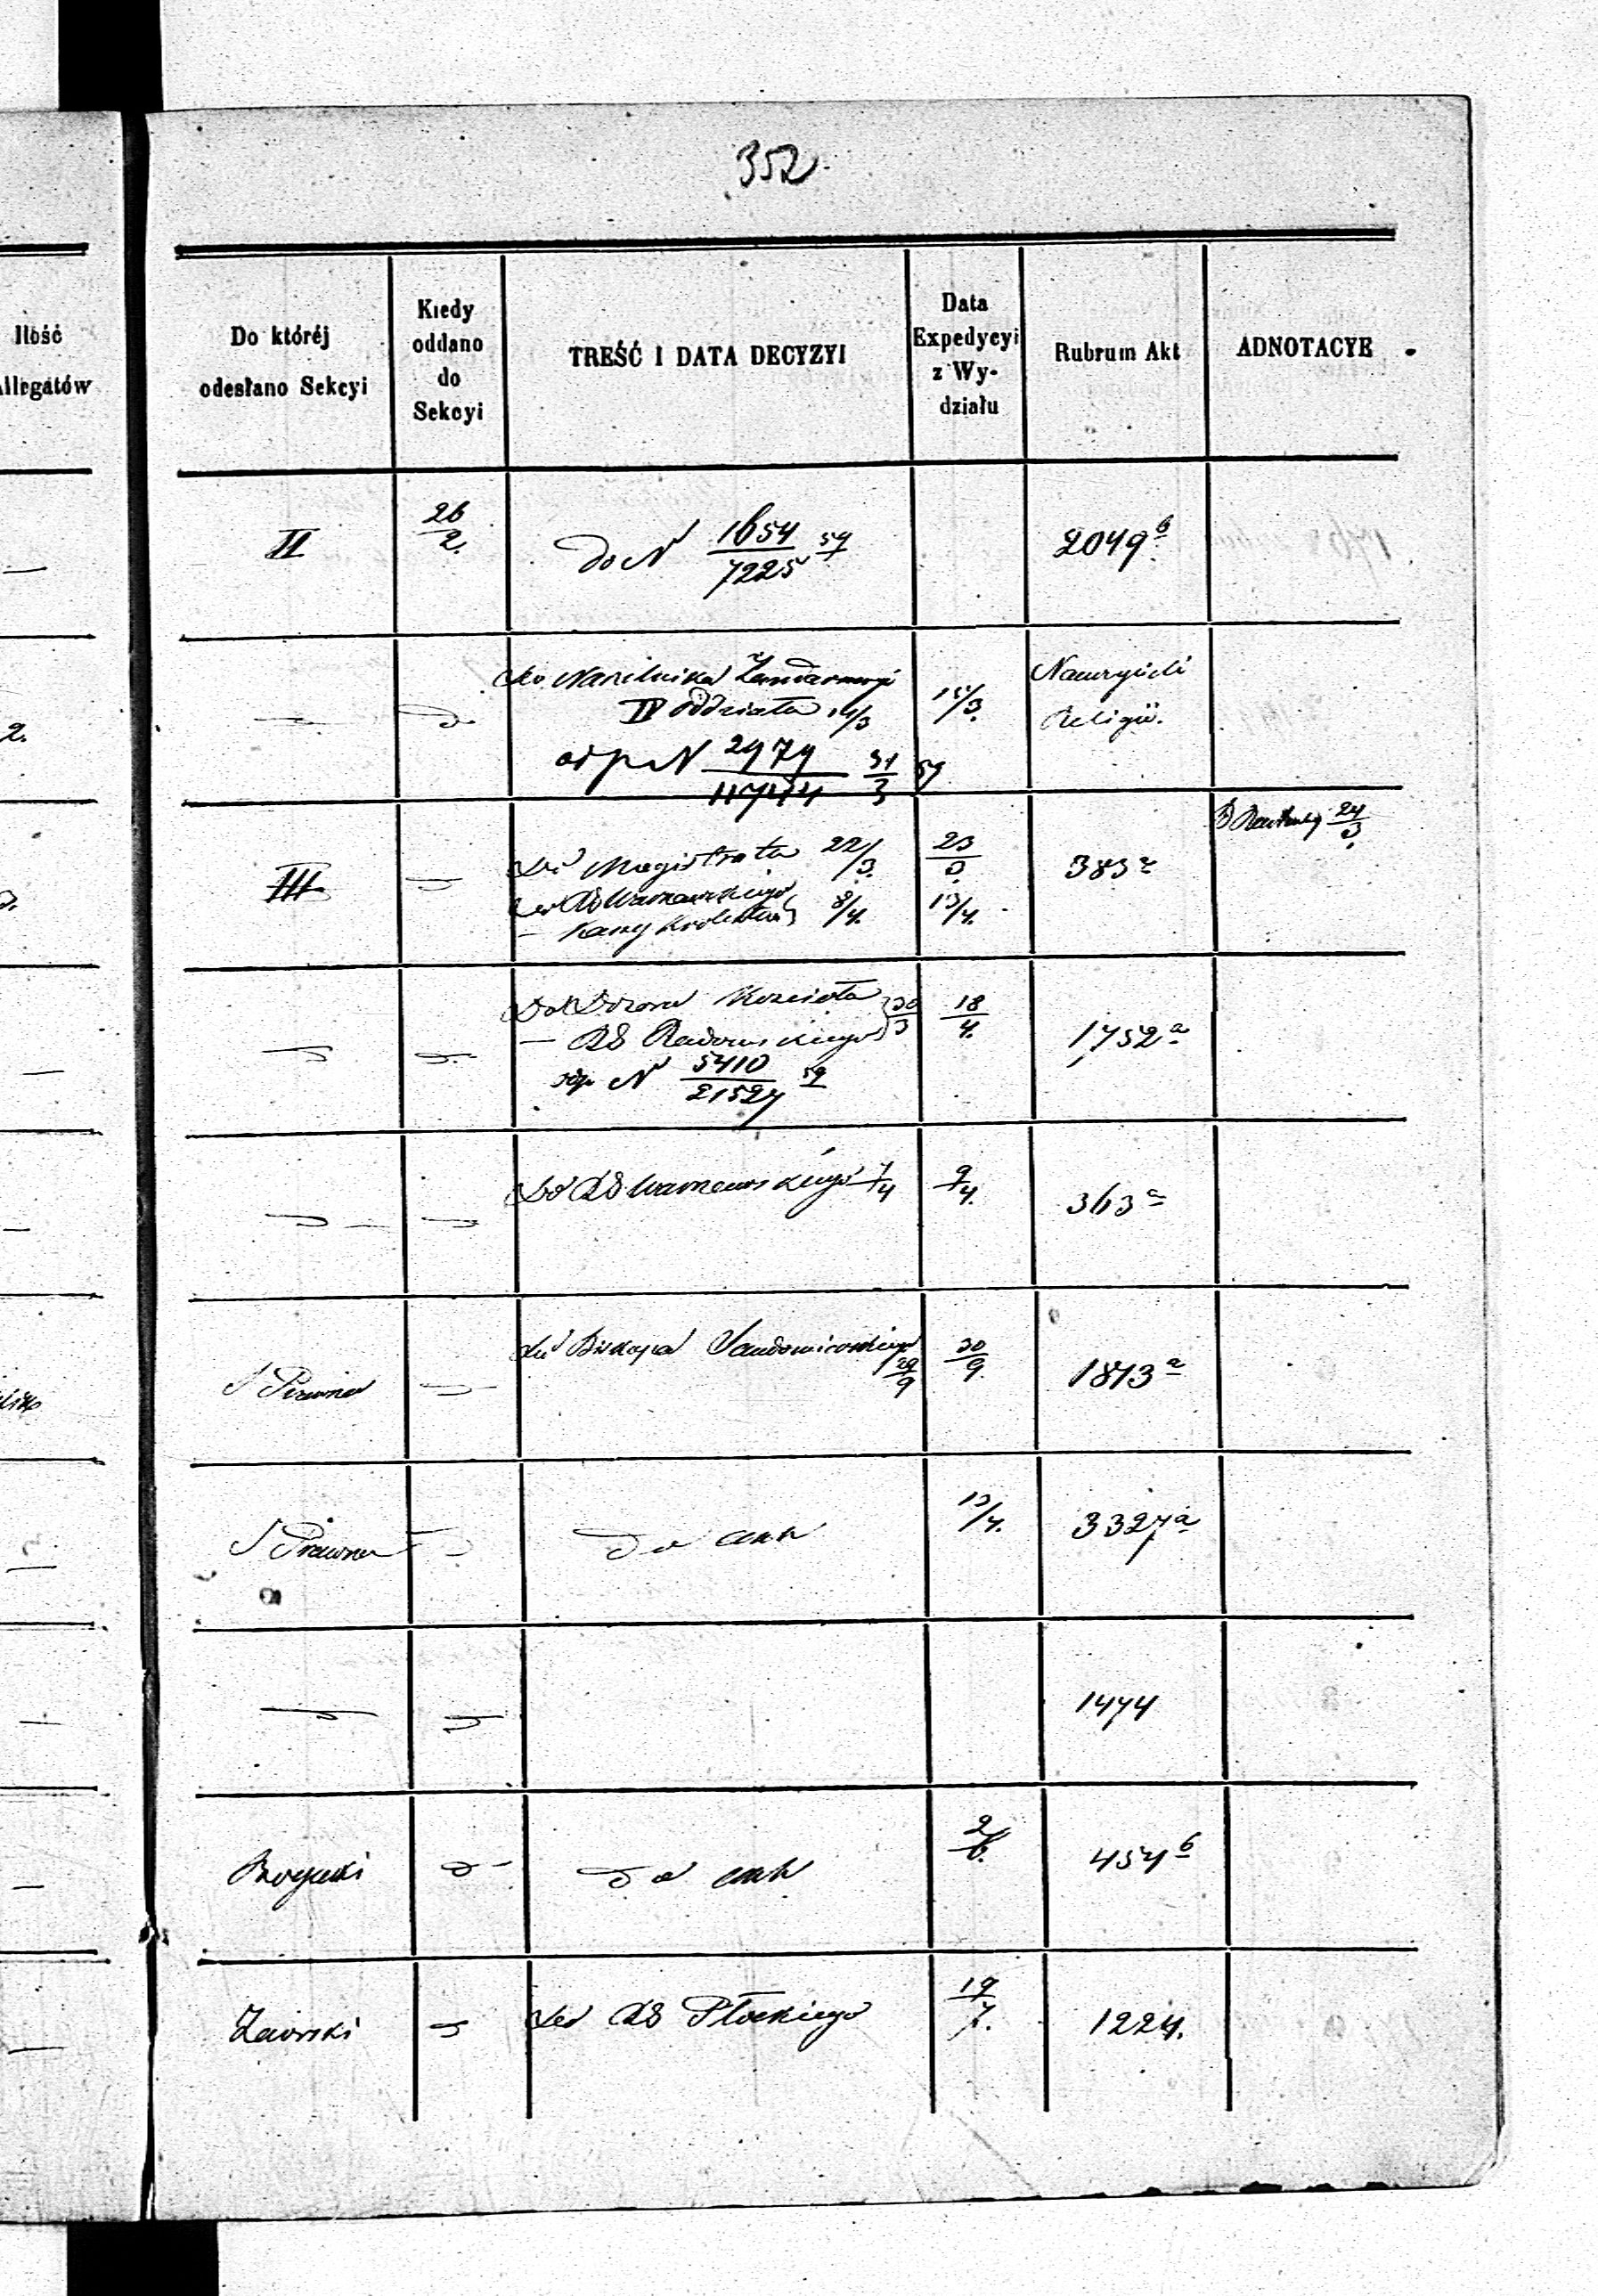 352.
Ilość
Allegatów
Do któréj
odesłano Sekcyi
Kiedy
oddano
do
Sekcyi
TREŚĆ I DATA DECYZYI
Data
Expedycyi
z Wy-
działu
Rubrum Akt
ADNOTACYE
II
26/2.
do N 1654/7225 59
2049 b
Do Naczelnika Żandarmeryi
IV Oddziału 14/3
odp N 2979/11744 31/3 59
15/3.
Religii.
III
Do Magistratu 22/3.
Do RG Warszawskiego
— Kassy Królestwa 8/4.
23/3.
13/4.
383 a
24/3
Do Dozoru Kościoła
— RG Radomskiego 30/3
odp N 5410/21527 59
18/4.
1752 a
Do RG Warszawskiego 7/4
9/4.
363 a
S Prawna
Do Biskupa Sandomierskiego
29/9
30/9.
1873 a
S Prawna
Do akt
13/4.
3327 a
1474
Do akt
2/6.
454 b
Zaorski
Do RG Płockiego
19/7.
1224.